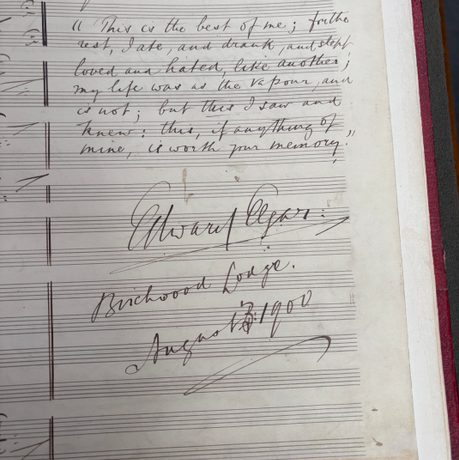 "This is the best of me; for the
rest, I ate, and drank, and slept,
loved and hated, like another;
my life was as the vapour, and
is not; but this I saw and
knew: this, if anything of
mine, is worth your memory."
Edward Elgar.
Birchwood Lodge.
August 1900